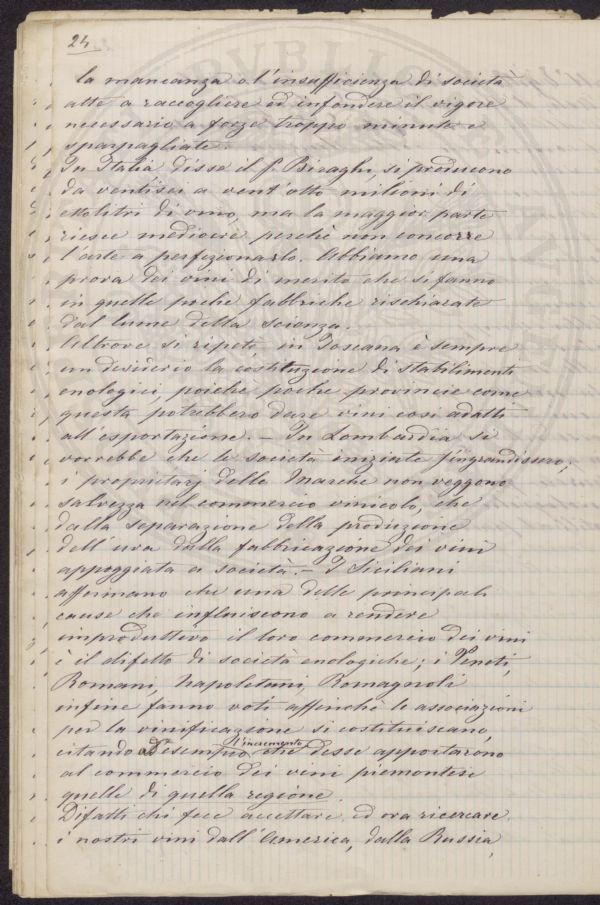 24
la mancanza o l'insufficienza di società
atte a raccogliere ed infondere il vigore
necessario a forze troppo minute e
sparpagliate.
In Italia disse il f. Biraghi, si producono
da ventisei a vent'otto milioni di
ettolitri di vino, ma la maggior parte
riesce mediocre perchè non concorre
l'arte a perfezionarlo. Abbiamo una
prova dei vini di merito che si fanno
in quelle poche fabbriche rischiarate
dal lume della scienza.
Altrove si ripete, in Toscana è sempre
un desiderio la costituzione di stabilimenti
enologici, poichè poche provincie come
questa potrebbero dare vini così adatti
all'esportazione. – In Lombardia si
vorrebbe che le società iniziate s'ingrandissero;
i proprietarj delle Marche non veggono
salvezza nel commercio vinicolo, che
dalla separazione della produzione
dell'uva dalla fabbricazione dei vini
appoggiata a società. – I Siciliani
affermano che una delle principali
cause che influiscono a rendere
improduttivo il loro commercio dei vini
è il difetto di società enologiche; i Veneti,
Romani, Napoletani, Romagnoli
infine fanno voti affinchè le associazioni
per la vinificazione si costituiscano,
l'incremento
citando ad esempio che desse apportarono
al commercio dei vini piemontesi
quelle di quella regione.
Difatti chi fece accettare ed ora ricercare
i nostri vini dall'America, dalla Russia,